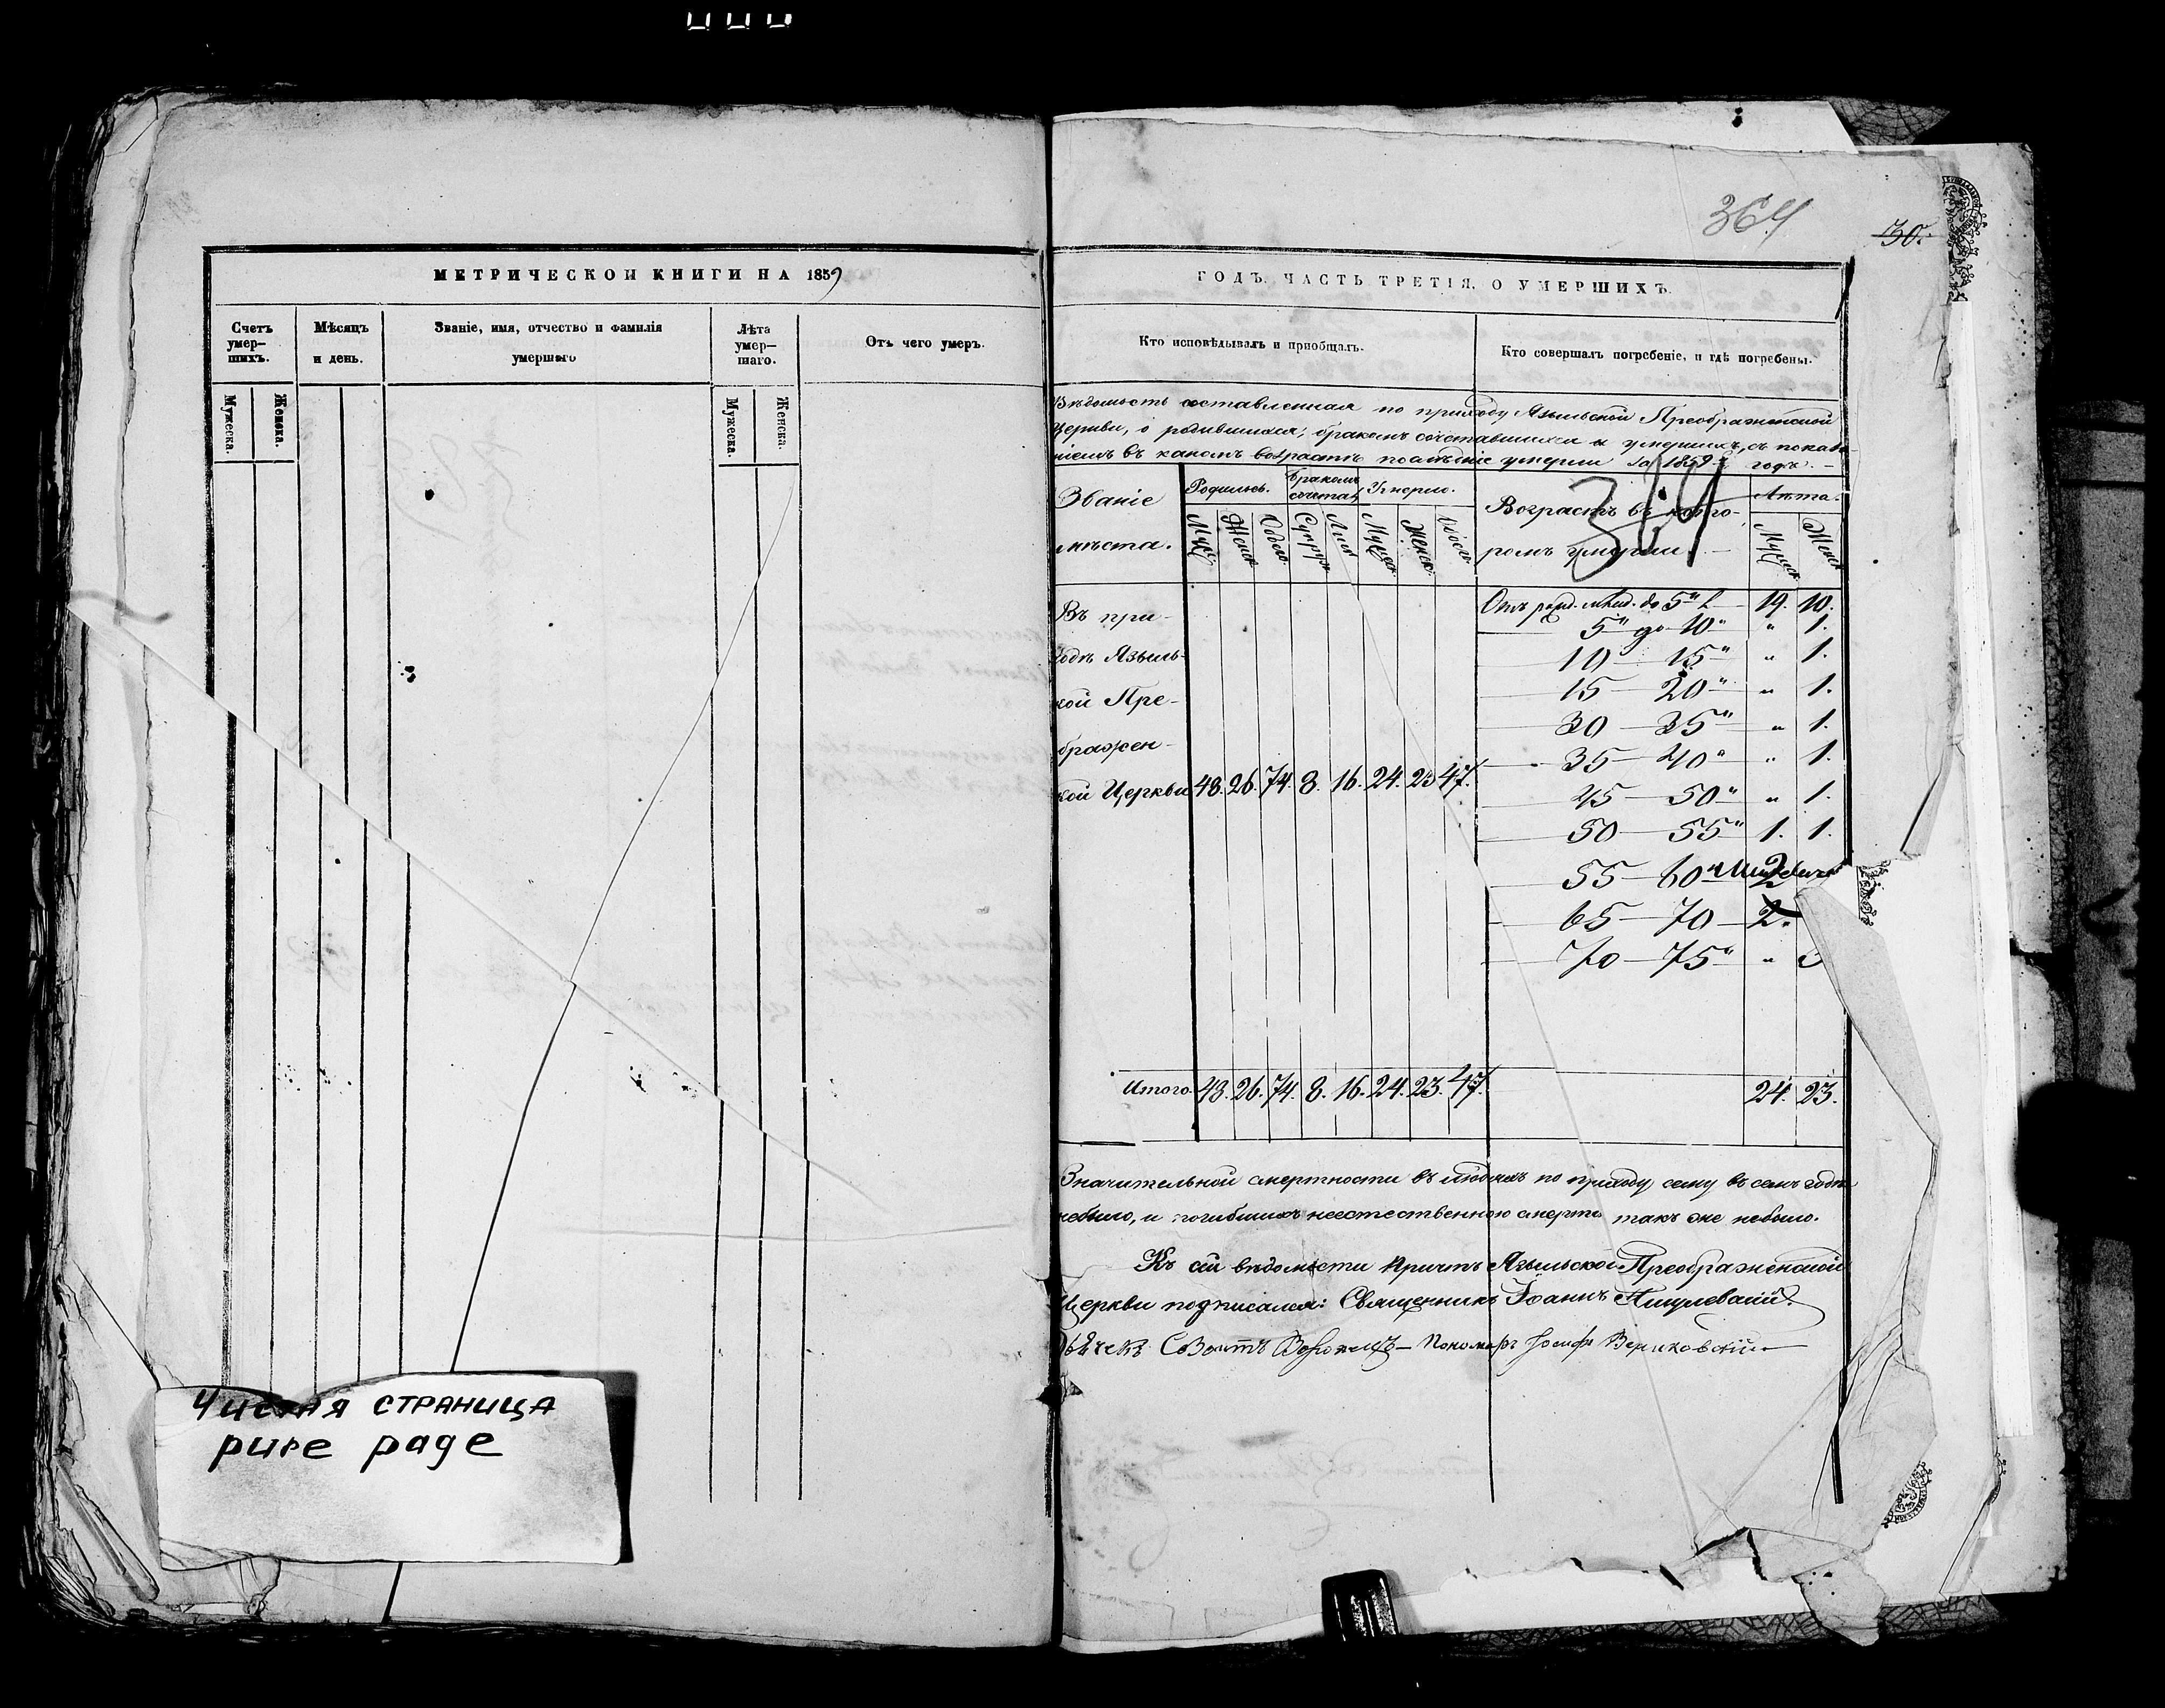 364
30.
МЕТРИЧЕСКОЙ КНИГИ НА 1859
ГОДЪ. ЧАСТЬ ТРЕТІЯ, О УМЕРШИХЪ.
Счетъ умер–шихъ.
Мѣсяцъ и день.
Званіе, имя, отчество и фамилія умершаго
Лѣта умер–шаго.
Отъ чего умеръ.
Мужеска.
Женска.
Мужеска.
Женска.
Чистая страница
pure page
Кто исповѣдывалъ и приобщалъ.
Кто совершалъ погребеніе, и гдѣ погребены.
Вѣдомость составленная по приходу Языльской Преображенской
Церкви, о родившихся, бракомъ сочетавшихся и умершихъ, съ показа-
ніемъ въ какомъ возрастѣ послѣдніе умерли за 1859 годъ. —
Званіе мѣста.
Родились.
Бракомъ сочетал.
Умерло.
Возрастъ въ кото-
ромъ умерли. —
Лѣта.
364
Отъ рожд. млад. до 5" л — 19. 10.
5" до 10" " 1.
10 — 15" " 1.
15 — 20" " 1.
30 — 35" " 1.
35 — 40" " 1.
45 — 50" " 1.
50 — 55" 1. 1.
55 — 60" 2
65 — 70 — 2.
70 — 75" "
Въ при-
ходѣ Языль-
кой Пре-
ображен-
кой Церкви 48. 26. 74. 8. 16. 24. 23 47.
Итого. 48. 26. 74. 8. 16. 24. 23. 47. 24. 23.
Значительной смертности въ людяхъ по приходу сему въ семъ годѣ
небыло, и погибшихъ неестественною смертю такъ же небыло.
Къ сей вѣдомости Причтъ Языльской Преображенской
Церкви подписался: Священникъ Іоаннъ
Пономарь Іосифъ